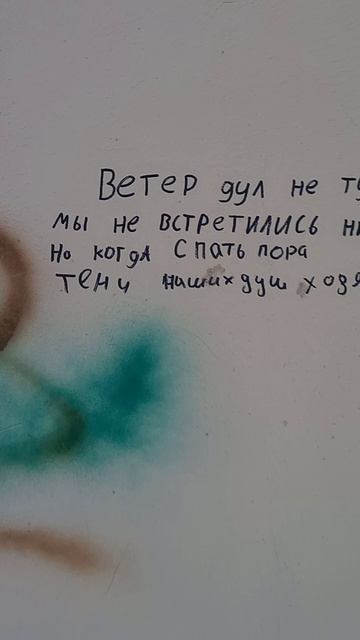 Ветер дул не ту
мы не встретились ни
Но когда спать пора
тени наших душ ходя